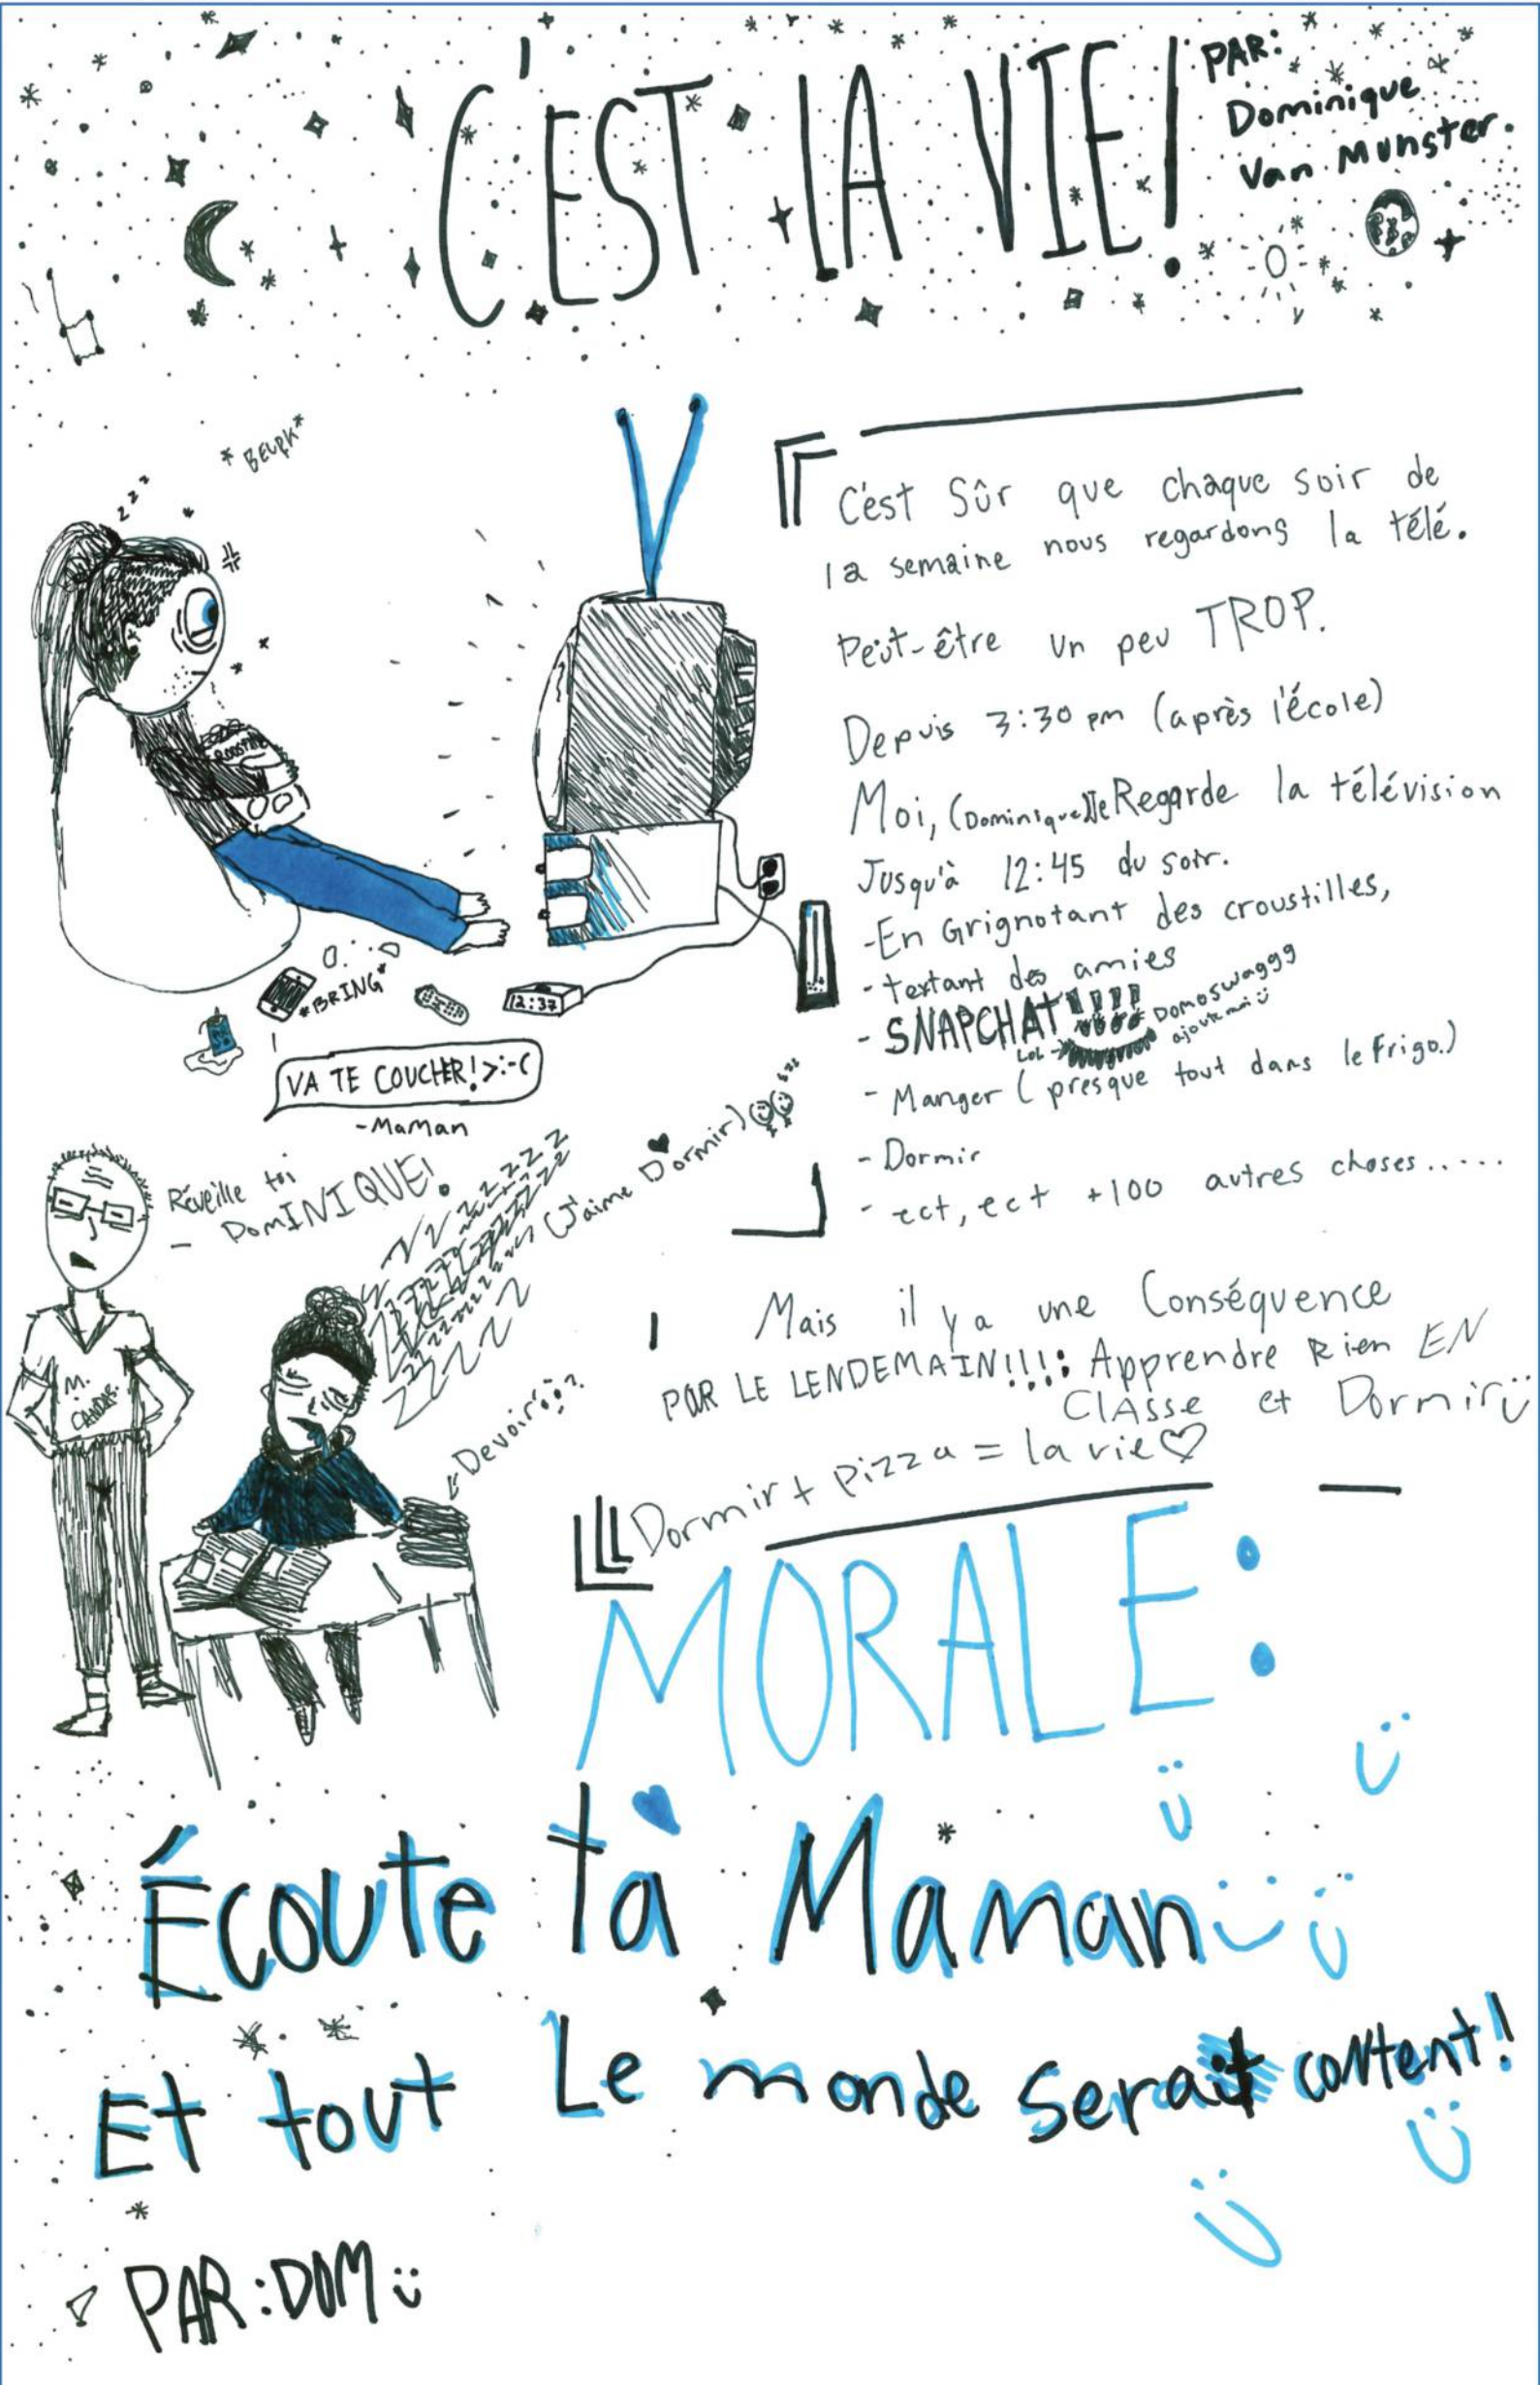 C'EST LA VIE!
PAR:
Dominique
Van Munster.
*BEURK*
zzz
C'est Sûr que chaque soir de
la semaine nous regardons la télé.
Peut-être un peu TROP.
Depuis 3:30 pm (après l'école)
Moi, (Dominique) Je Regarde la télévision
Jusqu'à 12:45 du soir.
-En Grignotant des croustilles,
- textant des amies
- SNAPCHAT!!!!!
LOL→
DOMOSWAGGG
ajoute moi
- Manger (presque tout dans le Frigo.)
- Dormir
- ect, ect +100 autres choses.....
*BRING*
12:37
VA TE COUCHER! >:-(
-Maman
Réveille toi
- DOMINIQUE!
(J'aime Dormir)
zzz
M.
Devoirs??
Mais il y a une Conséquence
POR LE LENDEMAIN!!!!: Apprendre Rien EN
CLASSE et Dormir
Dormir + Pizza = la vie ♡
MORALE:
Écoute ta Maman
Et tout Le monde serait content!
PAR:DOM